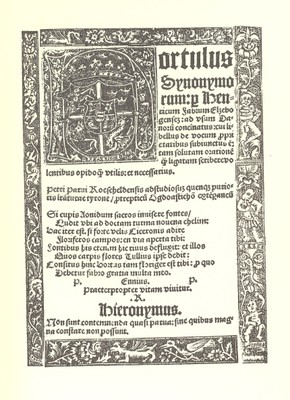 Hortulus
Synonymo
rum: per Hen-
ricum Fabrum Elzebo-
gensem: ad vsum Da-
norum concinatus: cui li-
bellus de vocum proprie-
tatibus subiunctus est
tam solutam orationem
quam ligatam scribere vo
lentibus opidoque vtilis: et necessarius.
Petri parui Roeschildensis ad studiosum quemque
litaturae tyrone
Si cupis Aonidum sacros inuisere fontes/
Ludit vbi ad doctam turma nouena chelim:
Hac iter est. si forte velis Ciceronis adire
Florseros campos: en via aperta tibi:
Fontibus his etenim hic riuus defluxit: et illos
Quos carpis flores Tullius ipse dedit:
Consitus hinc hortus tam floriger est tibi: pro quo
Debetur fabro gratia multa meo.
P. Ennus. P.
Praeterpropter vitam viuitur.
.R.
Hieronymus.
Non sunt contemnenda quasi parua: sine quibus mag
na constare non possunt.